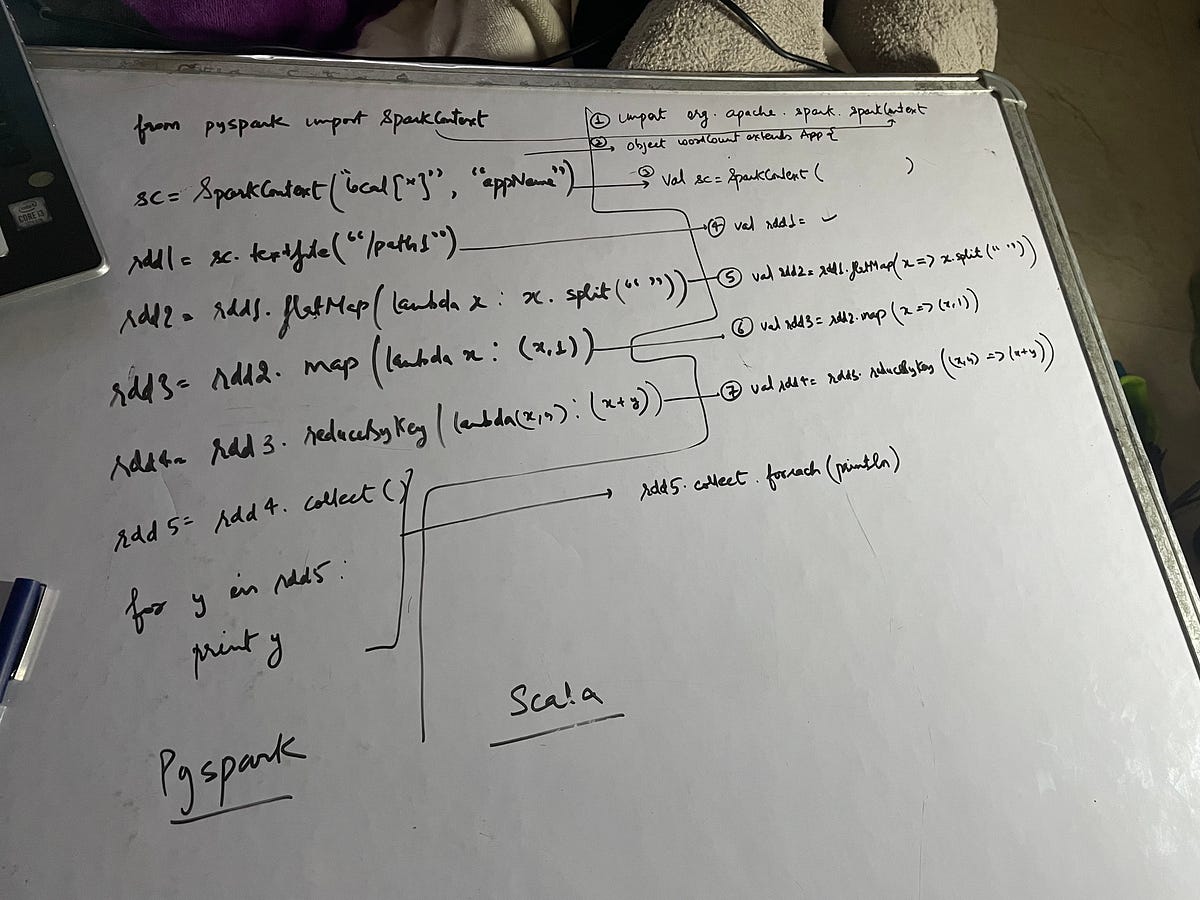 from pyspark import SparkContext
sc = SparkContext("local[*]", "appName")
rdd1 = sc.textfile("/path1")
rdd2 = rdd1. flatMap(lambda x : x. split(" "))
rdd3 = rdd2. map (lambda x : (x,1))
rdd4 = rdd3. reduceByKey (lambda(x,y) : (x+y))
rdd5 = rdd4. collect ()
for y in rdd5 :
print y
Pyspark
① import org. apache. spark. SparkContext
② object wordCount extends App {
③ val sc = SparkContext ( )
④ val rdd1 = ✓
⑤ val rdd2 = rdd1. flatMap(x => x.split(" "))
⑥ val rdd3 = rdd2. map (x => (x,1))
⑦ val rdd4 = rdd3. reduceByKey ((x,y) => (x+y))
rdd5. collect. foreach (println)
Scala
CORE i3